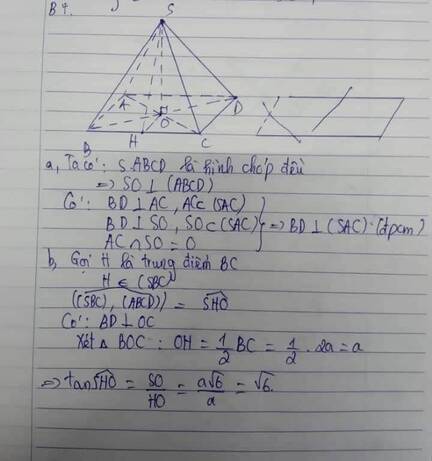 B4.
S
A
D
O
B
H
C
a, Ta có: S.ABCD là hình chóp đều
=> SO ⊥ (ABCD)
Có: BD ⊥ AC, AC ⊂ (SAC)
BD ⊥ SO, SO ⊂ (SAC) } => BD ⊥ (SAC) (đpcm)
AC ∩ SO = O
b, Gọi H là trung điểm BC
H ∈ (SBC)
((SBC), (ABCD)) = SHO
Có: BD ⊥ OC
Xét Δ BOC : OH = 1/2 BC = 1/2 . 2a = a
=> tan SHO = SO/HO = a√6/a = √6.